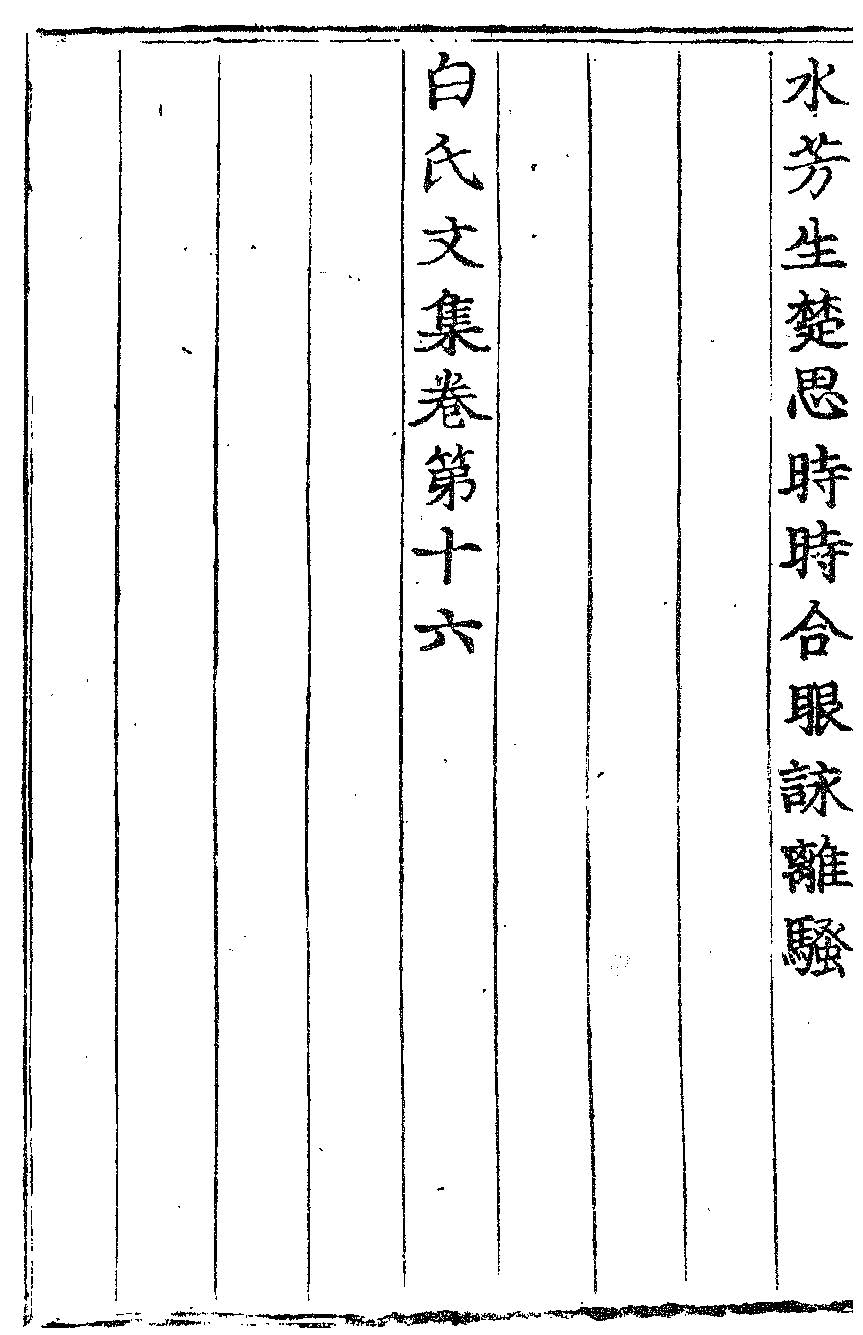 水芳生楚思時時合眼詠離騷
白氏文集卷第十六